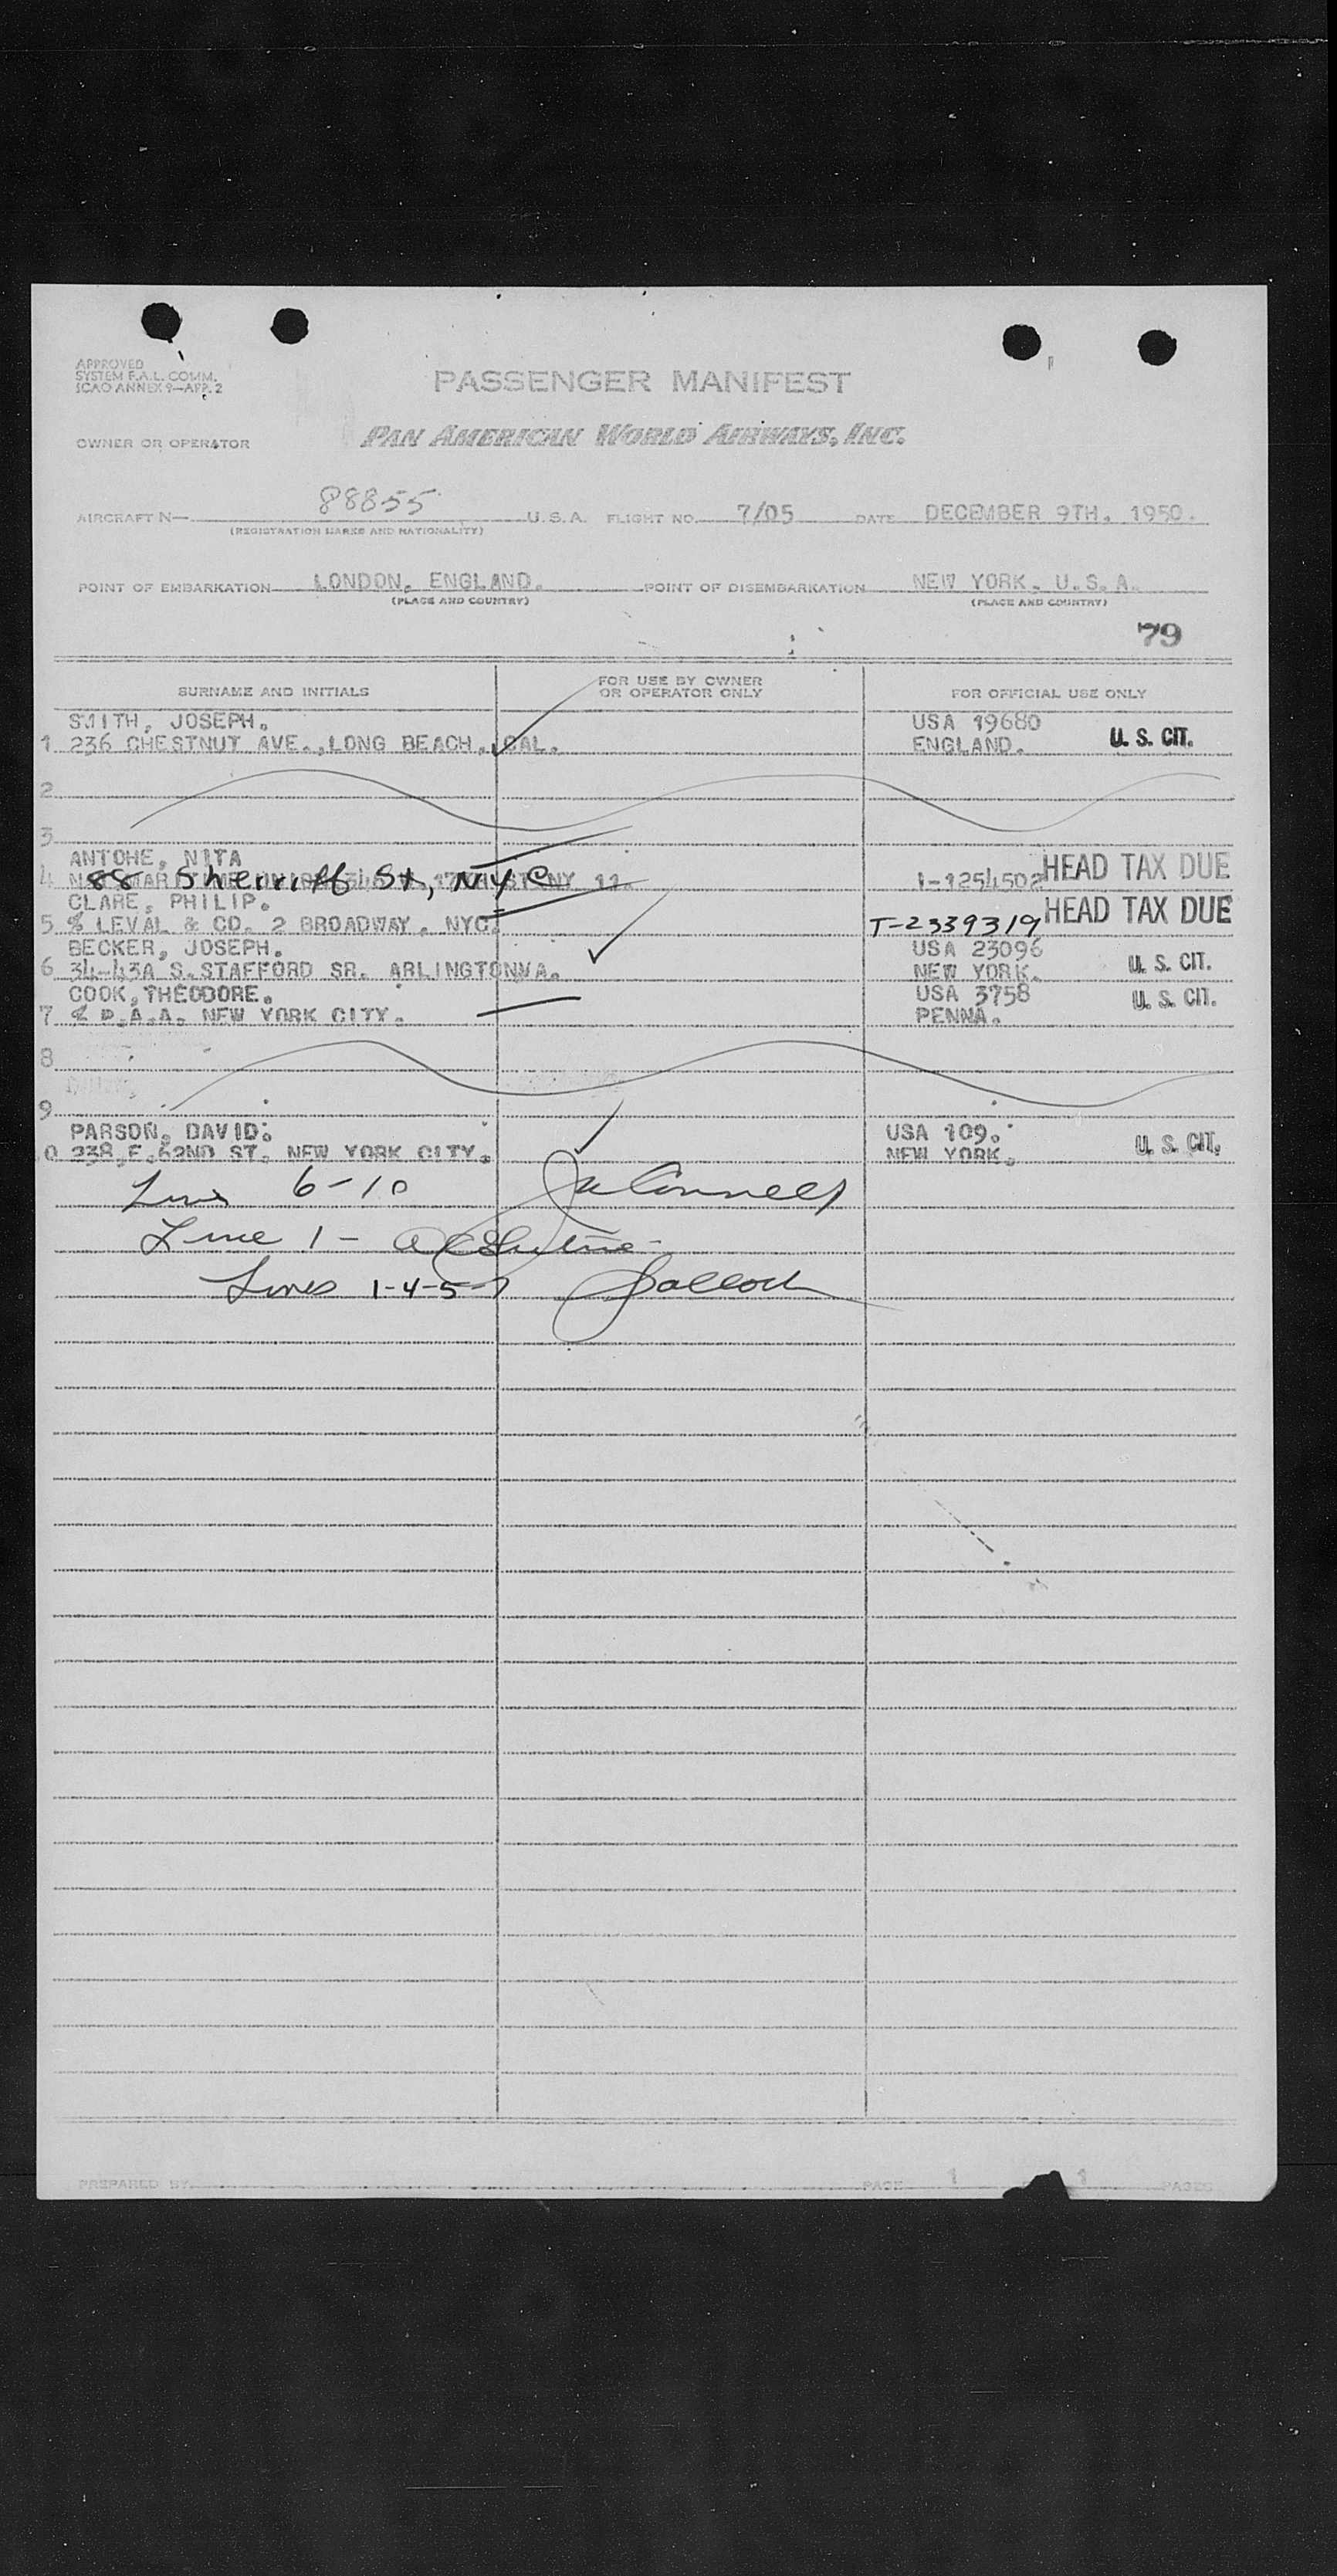 APPROVED
SYSTEM F.A.L. COMM.
ICAO ANNEX 9—APP. 2
PASSENGER MANIFEST
OWNER OR OPERATOR PAN AMERICAN WORLD AIRWAYS, INC.
AIRCRAFT N— 88855 U.S.A. FLIGHT NO. 7/05 DATE DECEMBER 9TH. 1950.
(REGISTRATION MARKS AND NATIONALITY)
POINT OF EMBARKATION LONDON, ENGLAND. POINT OF DISEMBARKATION NEW YORK. U.S.A.
(PLACE AND COUNTRY) (PLACE AND COUNTRY)
79
SURNAME AND INITIALS FOR USE BY OWNER OR OPERATOR ONLY FOR OFFICIAL USE ONLY
SMITH, JOSEPH. USA 19680
1 236 CHESTNUT AVE.,LONG BEACH, CAL. ENGLAND. U. S. CIT.
2
3
ANTOHE, NITA
4 88 Sherriff St, NYC NY 11. 1-1254502 HEAD TAX DUE
CLARE, PHILIP.
5 % LEVAL & CO. 2 BROADWAY, NYC. T-2339319 HEAD TAX DUE
BECKER, JOSEPH. USA 23096
6 34-43A S.STAFFORD SR. ARLINGTONVA. NEW YORK. U. S. CIT.
COOK,THEODORE. USA 3758 U. S. CIT.
7 % P.A.A. NEW YORK CITY. PENNA.
8
9
PARSON, DAVID. USA 109.
0 238,E.62ND ST. NEW YORK CITY. NEW YORK. U. S. CIT.
Lines 6-10
Line 1 -
Lines 1-4-5-7
PREPARED BY PAGE 1 1 PAGES